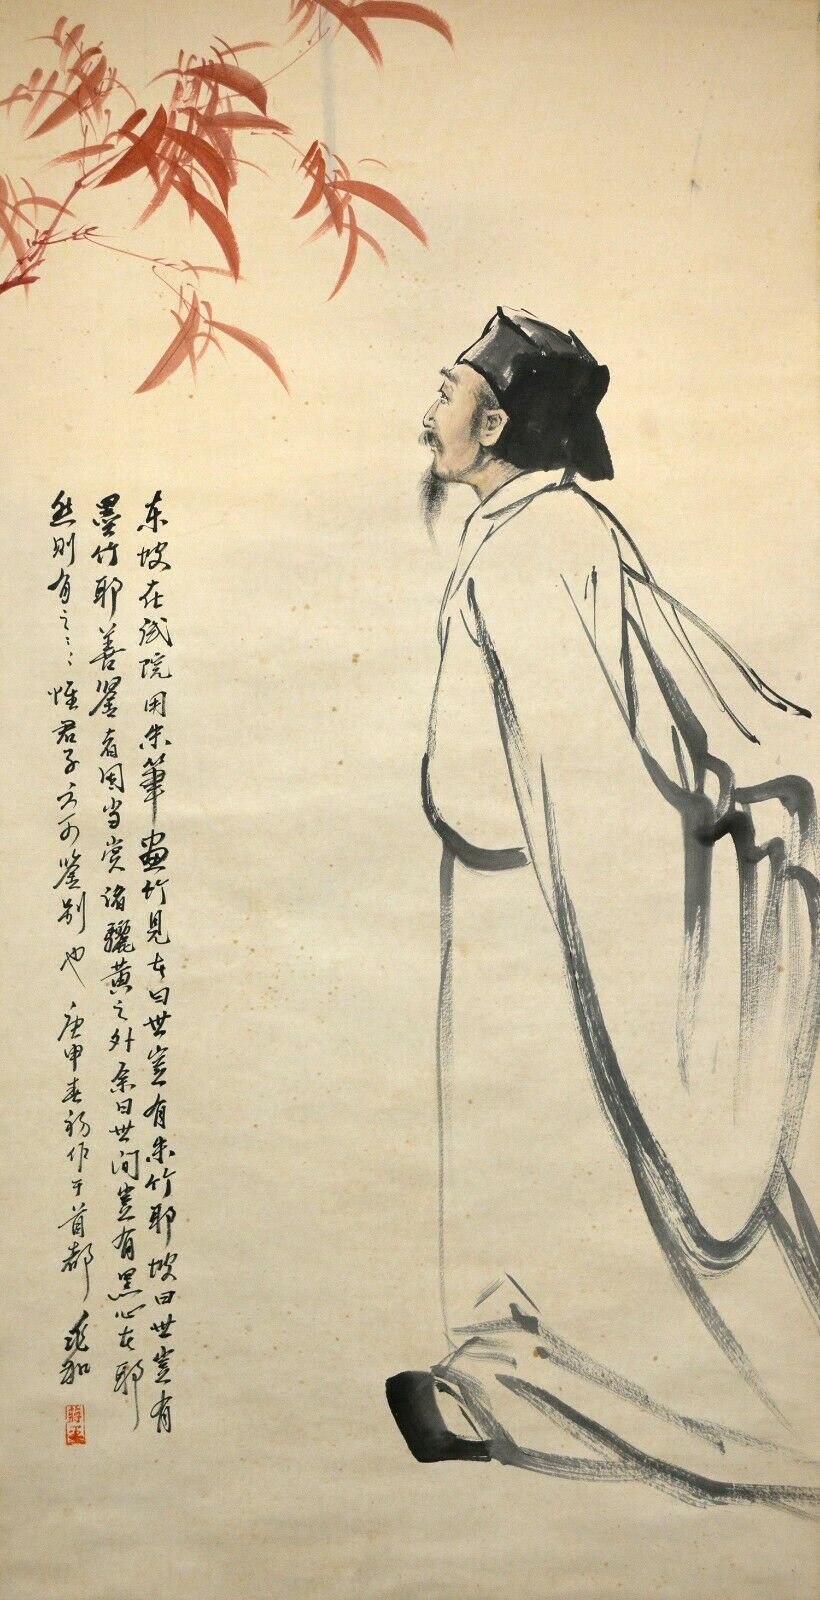 东坡在试院用朱笔画竹见者曰世岂有朱竹耶坡曰世岂有
墨竹耶善鉴者固当赏诸骊黄之外余曰世间岂有黑心者耶
然则有之ミミ惟君子方可鉴别也 庚申春初作于首都 兆和
蒋